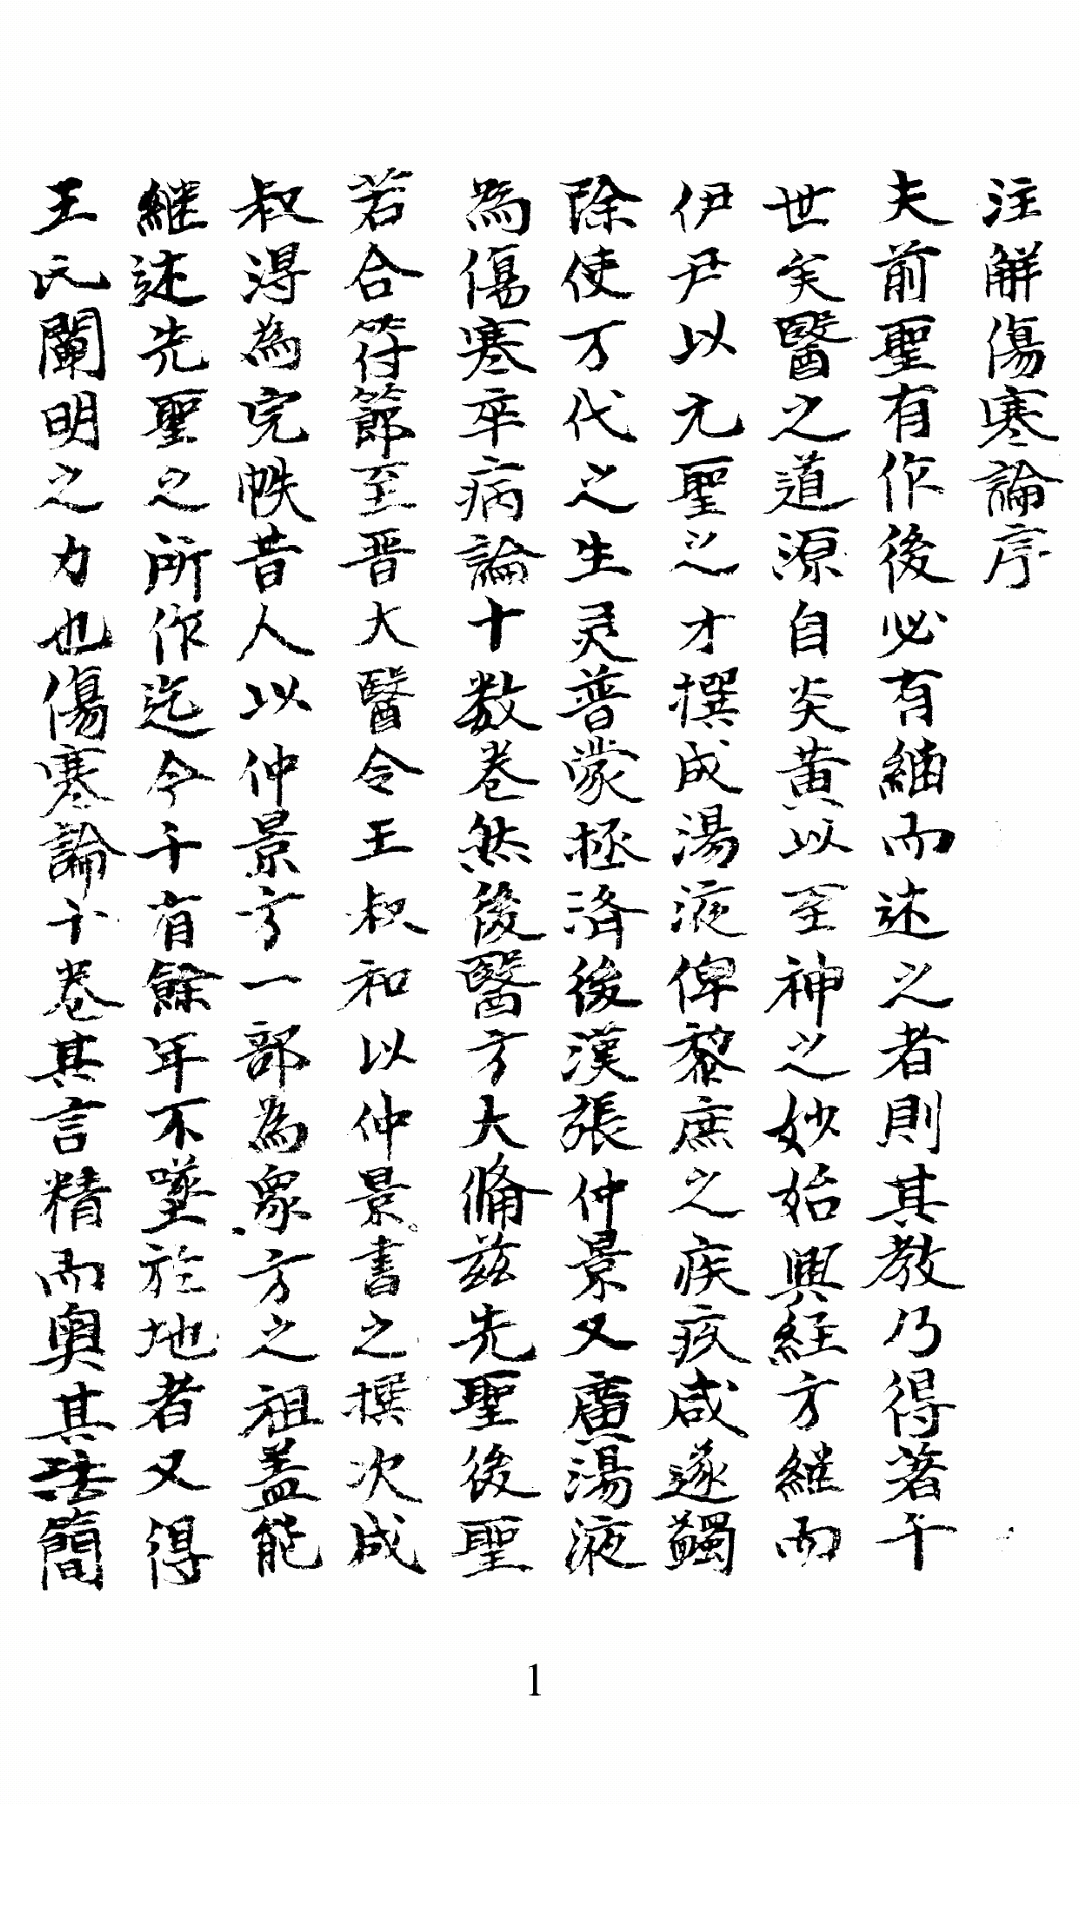 注解傷寒論序
夫前聖有作後必有継而述之者則其教乃得著于
世矣醫之道源自炎黃以至神之妙始興経方継而
伊尹以元聖之才撰成湯液俾黎庶之疾疚咸遂蠲
除使万代之生灵普蒙拯済後漢張仲景又廣湯液
為傷寒卒病論十数卷然後醫方大俻兹先聖後聖
若合符節至晋大醫令王叔和以仲景書之撰次成
叔淂為完帙昔人以仲景方一部為衆方之祖盖能
継述先聖之所作迄今千有餘年不墜於地者又得
王氏闡明之力也傷寒論十卷其言精而奥其法簡
1